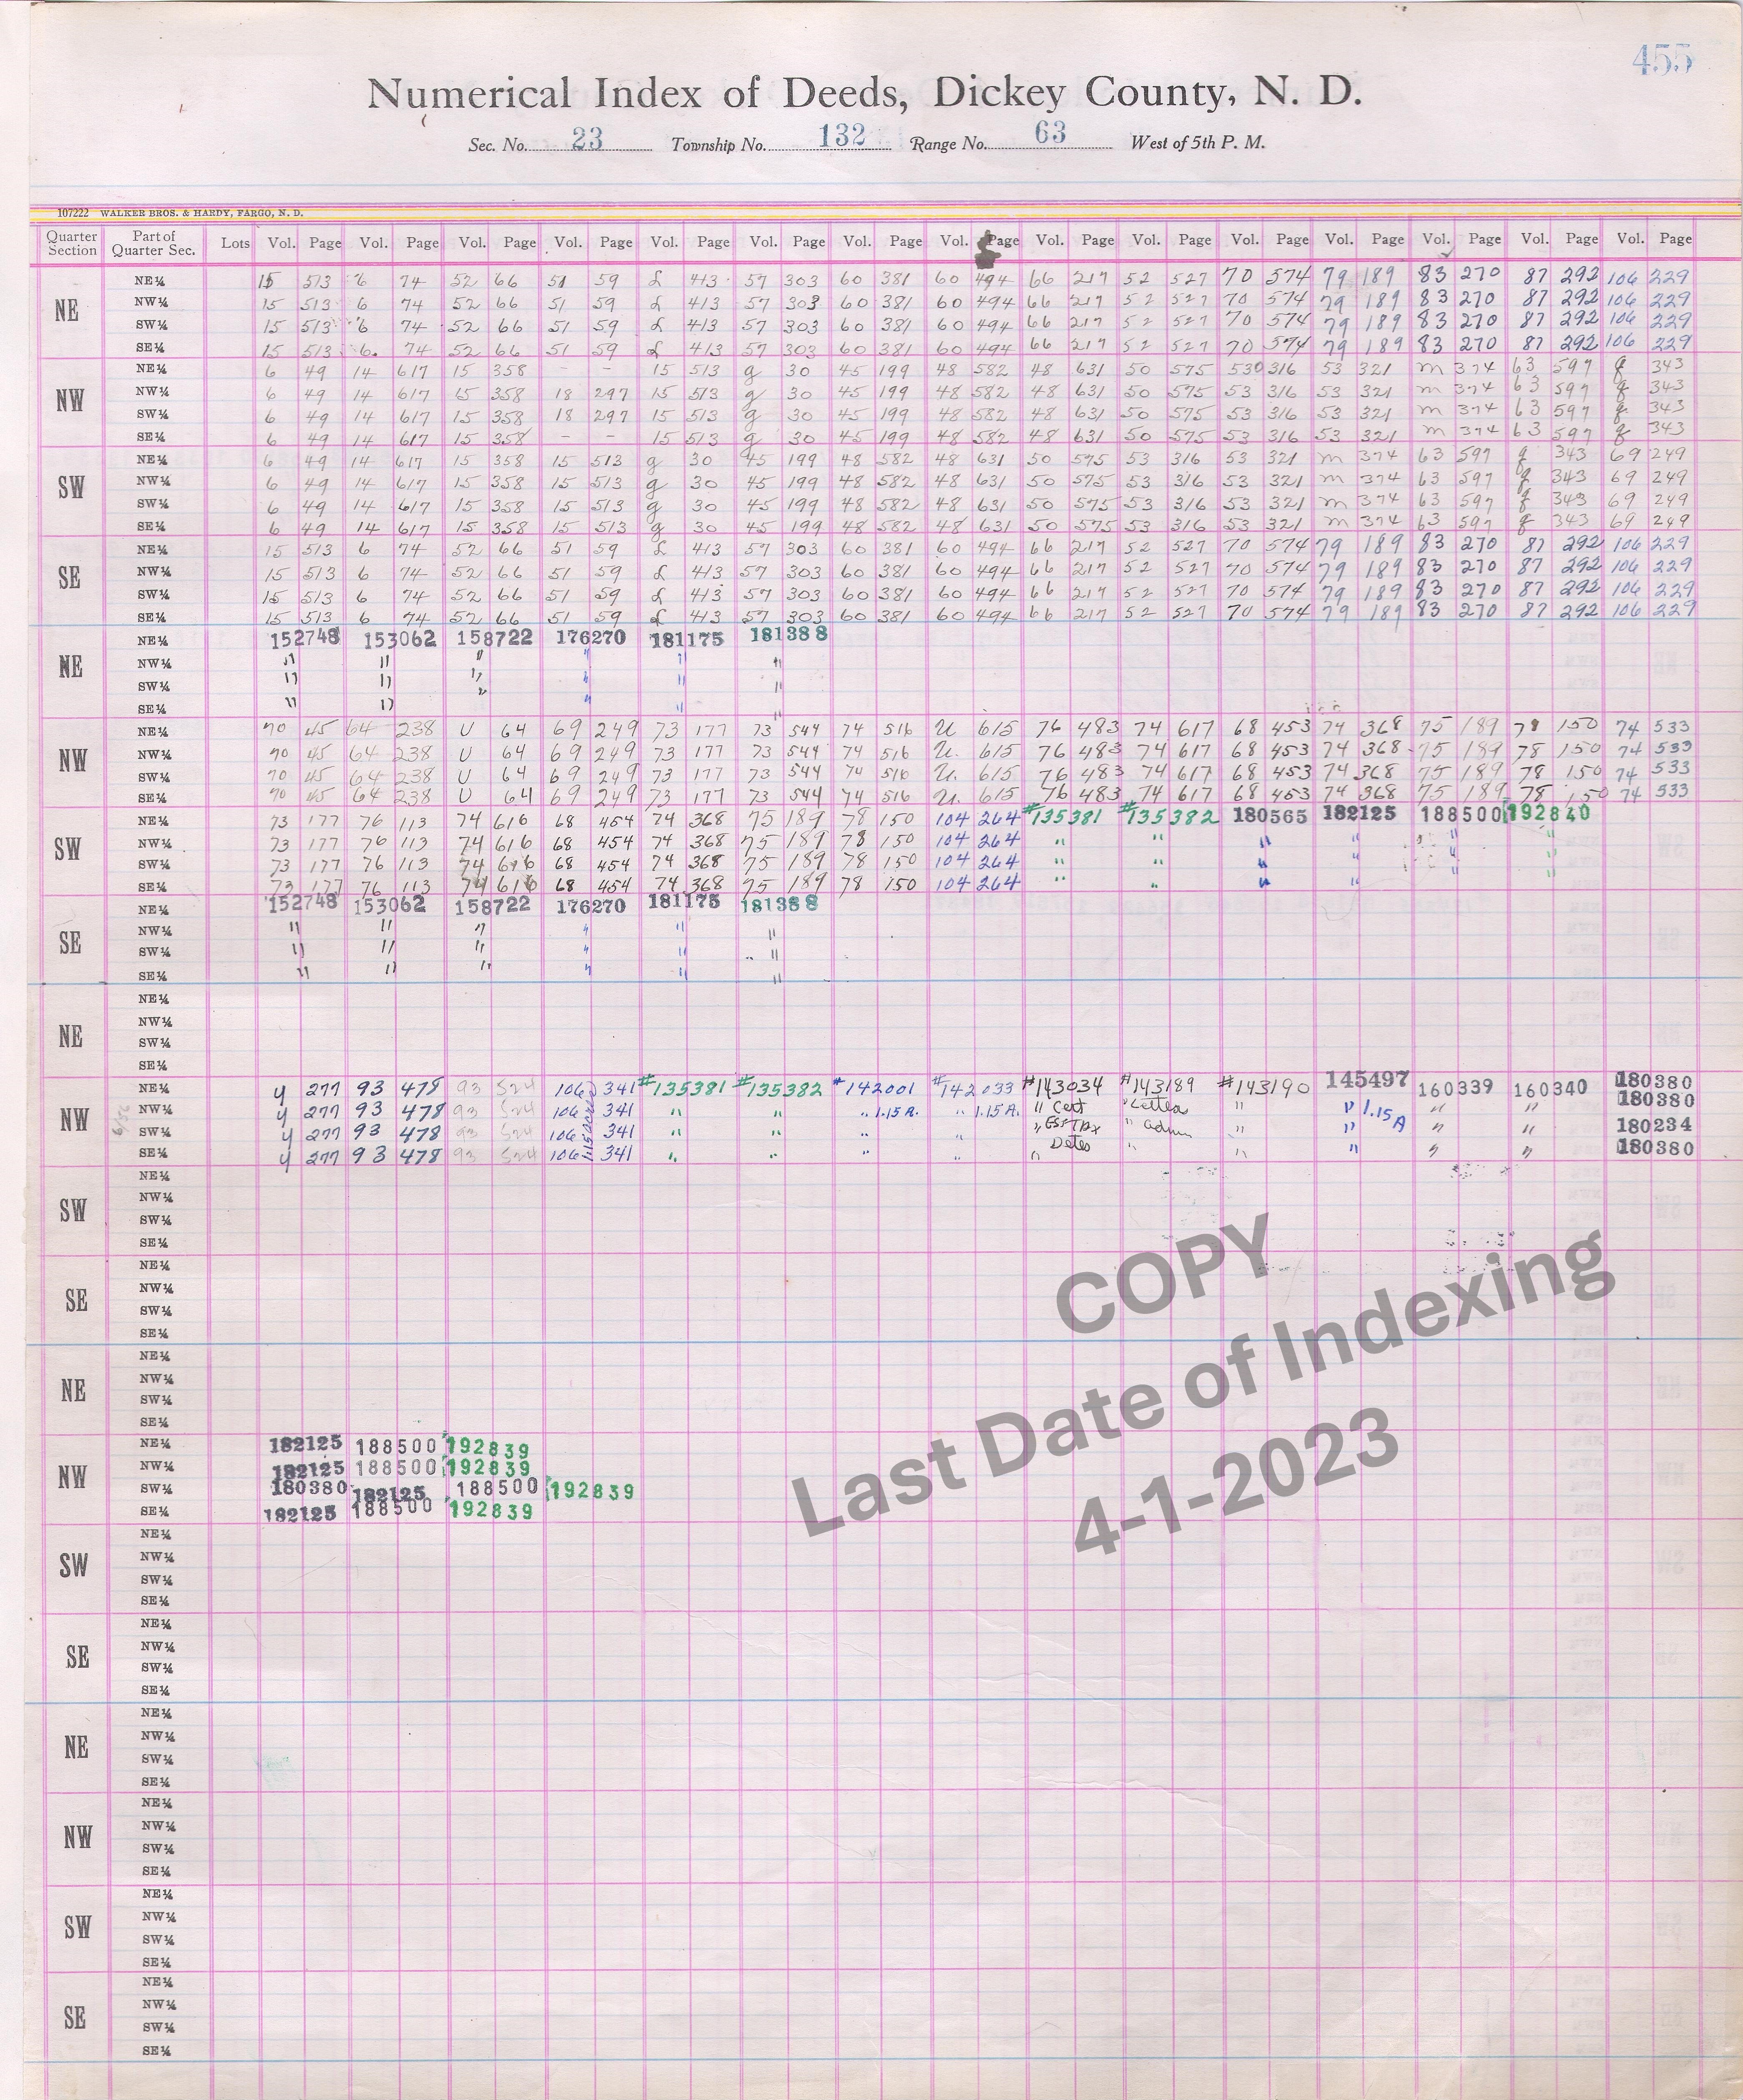 455
Numerical Index of Deeds, Dickey County, N. D.
Sec. No. 23 Township No. 132 Range No. 63 West of 5th P. M.
107222 WALKER BROS. & HARDY, FARGO, N. D.
Quarter Section Part of Quarter Sec. Lots Vol. Page Vol. Page Vol. Page Vol. Page Vol. Page Vol. Page Vol. Page Vol. Page Vol. Page Vol. Page Vol. Page Vol. Page Vol. Page Vol. Page Vol. Page
NE
NE¼ 15 513 6 74 52 66 51 59 L 413 57 303 60 381 60 494 66 217 52 527 70 574 79 189 83 270 87 292 106 229
NW¼ 15 513 6 74 52 66 51 59 L 413 57 303 60 381 60 494 66 217 52 527 70 574 79 189 83 270 87 292 106 229
SW¼ 15 513 6 74 52 66 51 59 L 413 57 303 60 381 60 494 66 217 52 527 70 574 79 189 83 270 87 292 106 229
SE¼ 15 513 6 74 52 66 51 59 L 413 57 303 60 381 60 494 66 217 52 527 70 574 79 189 83 270 87 292 106 229
NW
NE¼ 6 49 14 617 15 358 - - 15 513 g 30 45 199 48 582 48 631 50 575 530 316 53 321 m 374 63 597 q 343
NW¼ 6 49 14 617 15 358 18 297 15 513 g 30 45 199 48 582 48 631 50 575 53 316 53 321 m 374 63 597 q 343
SW¼ 6 49 14 617 15 358 18 297 15 513 g 30 45 199 48 582 48 631 50 575 53 316 53 321 m 374 63 597 q 343
SE¼ 6 49 14 617 15 358 - - 15 513 g 30 45 199 48 582 48 631 50 575 53 316 53 321 m 374 63 597 q 343
SW
NE¼ 6 49 14 617 15 358 15 513 g 30 45 199 48 582 48 631 50 575 53 316 53 321 m 374 63 597 q 343 69 249
NW¼ 6 49 14 617 15 358 15 513 g 30 45 199 48 582 48 631 50 575 53 316 53 321 m 374 63 597 q 343 69 249
SW¼ 6 49 14 617 15 358 15 513 g 30 45 199 48 582 48 631 50 575 53 316 53 321 m 374 63 597 q 343 69 249
SE¼ 6 49 14 617 15 358 15 513 g 30 45 199 48 582 48 631 50 575 53 316 53 321 m 374 63 597 q 343 69 249
SE
NE¼ 15 513 6 74 52 66 51 59 L 413 57 303 60 381 60 494 66 217 52 527 70 574 79 189 83 270 87 292 106 229
NW¼ 15 513 6 74 52 66 51 59 L 413 57 303 60 381 60 494 66 217 52 527 70 574 79 189 83 270 87 292 106 229
SW¼ 15 513 6 74 52 66 51 59 L 413 57 303 60 381 60 494 66 217 52 527 70 574 79 189 83 270 87 292 106 229
SE¼ 15 513 6 74 52 66 51 59 L 413 57 303 60 381 60 494 66 217 52 527 70 574 79 189 83 270 87 292 106 229
NE
NE¼ 152748 153062 158722 176270 181175 181388
NW¼ " " " " " "
SW¼ " " " " " "
SE¼ " " " " " "
NW
NE¼ 70 45 64 238 U 64 69 249 73 177 73 544 74 516 U 615 76 483 74 617 68 453 74 368 75 189 78 150 74 533
NW¼ 70 45 64 238 U 64 69 249 73 177 73 544 74 516 U. 615 76 483 74 617 68 453 74 368 75 189 78 150 74 533
SW¼ 70 45 64 238 U 64 69 249 73 177 73 544 74 516 U. 615 76 483 74 617 68 453 74 368 75 189 78 150 74 533
SE¼ 70 45 64 238 U 64 69 249 73 177 73 544 74 516 U. 615 76 483 74 617 68 453 74 368 75 189 78 150 74 533
SW
NE¼ 73 177 76 113 74 616 68 454 74 368 75 189 78 150 104 264 #135381 #135382 180565 182125 188500 192840
NW¼ 73 177 76 113 74 616 68 454 74 368 75 189 78 150 104 264 " " " " " "
SW¼ 73 177 76 113 74 616 68 454 74 368 75 189 78 150 104 264 " " " " " "
SE¼ 73 177 76 113 74 616 68 454 74 368 75 189 78 150 104 264 " " " " " "
SE
NE¼ 152748 153062 158722 176270 181175 181388
NW¼ " " " " " "
SW¼ " " " " " "
SE¼ " " " " " "
NE
NE¼
NW¼
SW¼
SE¼
NW
NE¼ y 277 93 478 93 524 106 341 #135381 #135382 #142001 #142033 #143034 #143189 #143190 145497 160339 160340 180380
NW¼ y 277 93 478 93 524 106 341 " " " 1.15 A. " 1.15 A. " Cert " Letters " " 1.15 A " " 180380
SW¼ y 277 93 478 93 524 106 341 " " " " " Est Tax " Admin " " " " 180234
SE¼ y 277 93 478 93 524 106 341 " " " " " Detes " " " " " 180380
SW
NE¼
NW¼
SW¼
SE¼
SE
NE¼
NW¼
SW¼
SE¼
NE
NE¼
NW¼
SW¼
SE¼
NW
NE¼ 182125 188500 192839
NW¼ 182125 188500 192839
SW¼ 180380 182125 188500 192839
SE¼ 182125 188500 192839
SW
NE¼
NW¼
SW¼
SE¼
SE
NE¼
NW¼
SW¼
SE¼
NE
NE¼
NW¼
SW¼
SE¼
NW
NE¼
NW¼
SW¼
SE¼
SW
NE¼
NW¼
SW¼
SE¼
SE
NE¼
NW¼
SW¼
SE¼
COPY
Last Date of Indexing
4-1-2023